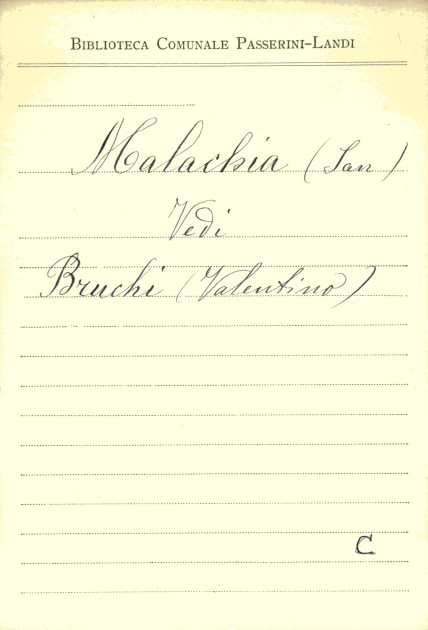 BIBLIOTECA COMUNALE PASSERINI-LANDI
Malachia (San)
Vedi
Bruchi (Valentino)
C